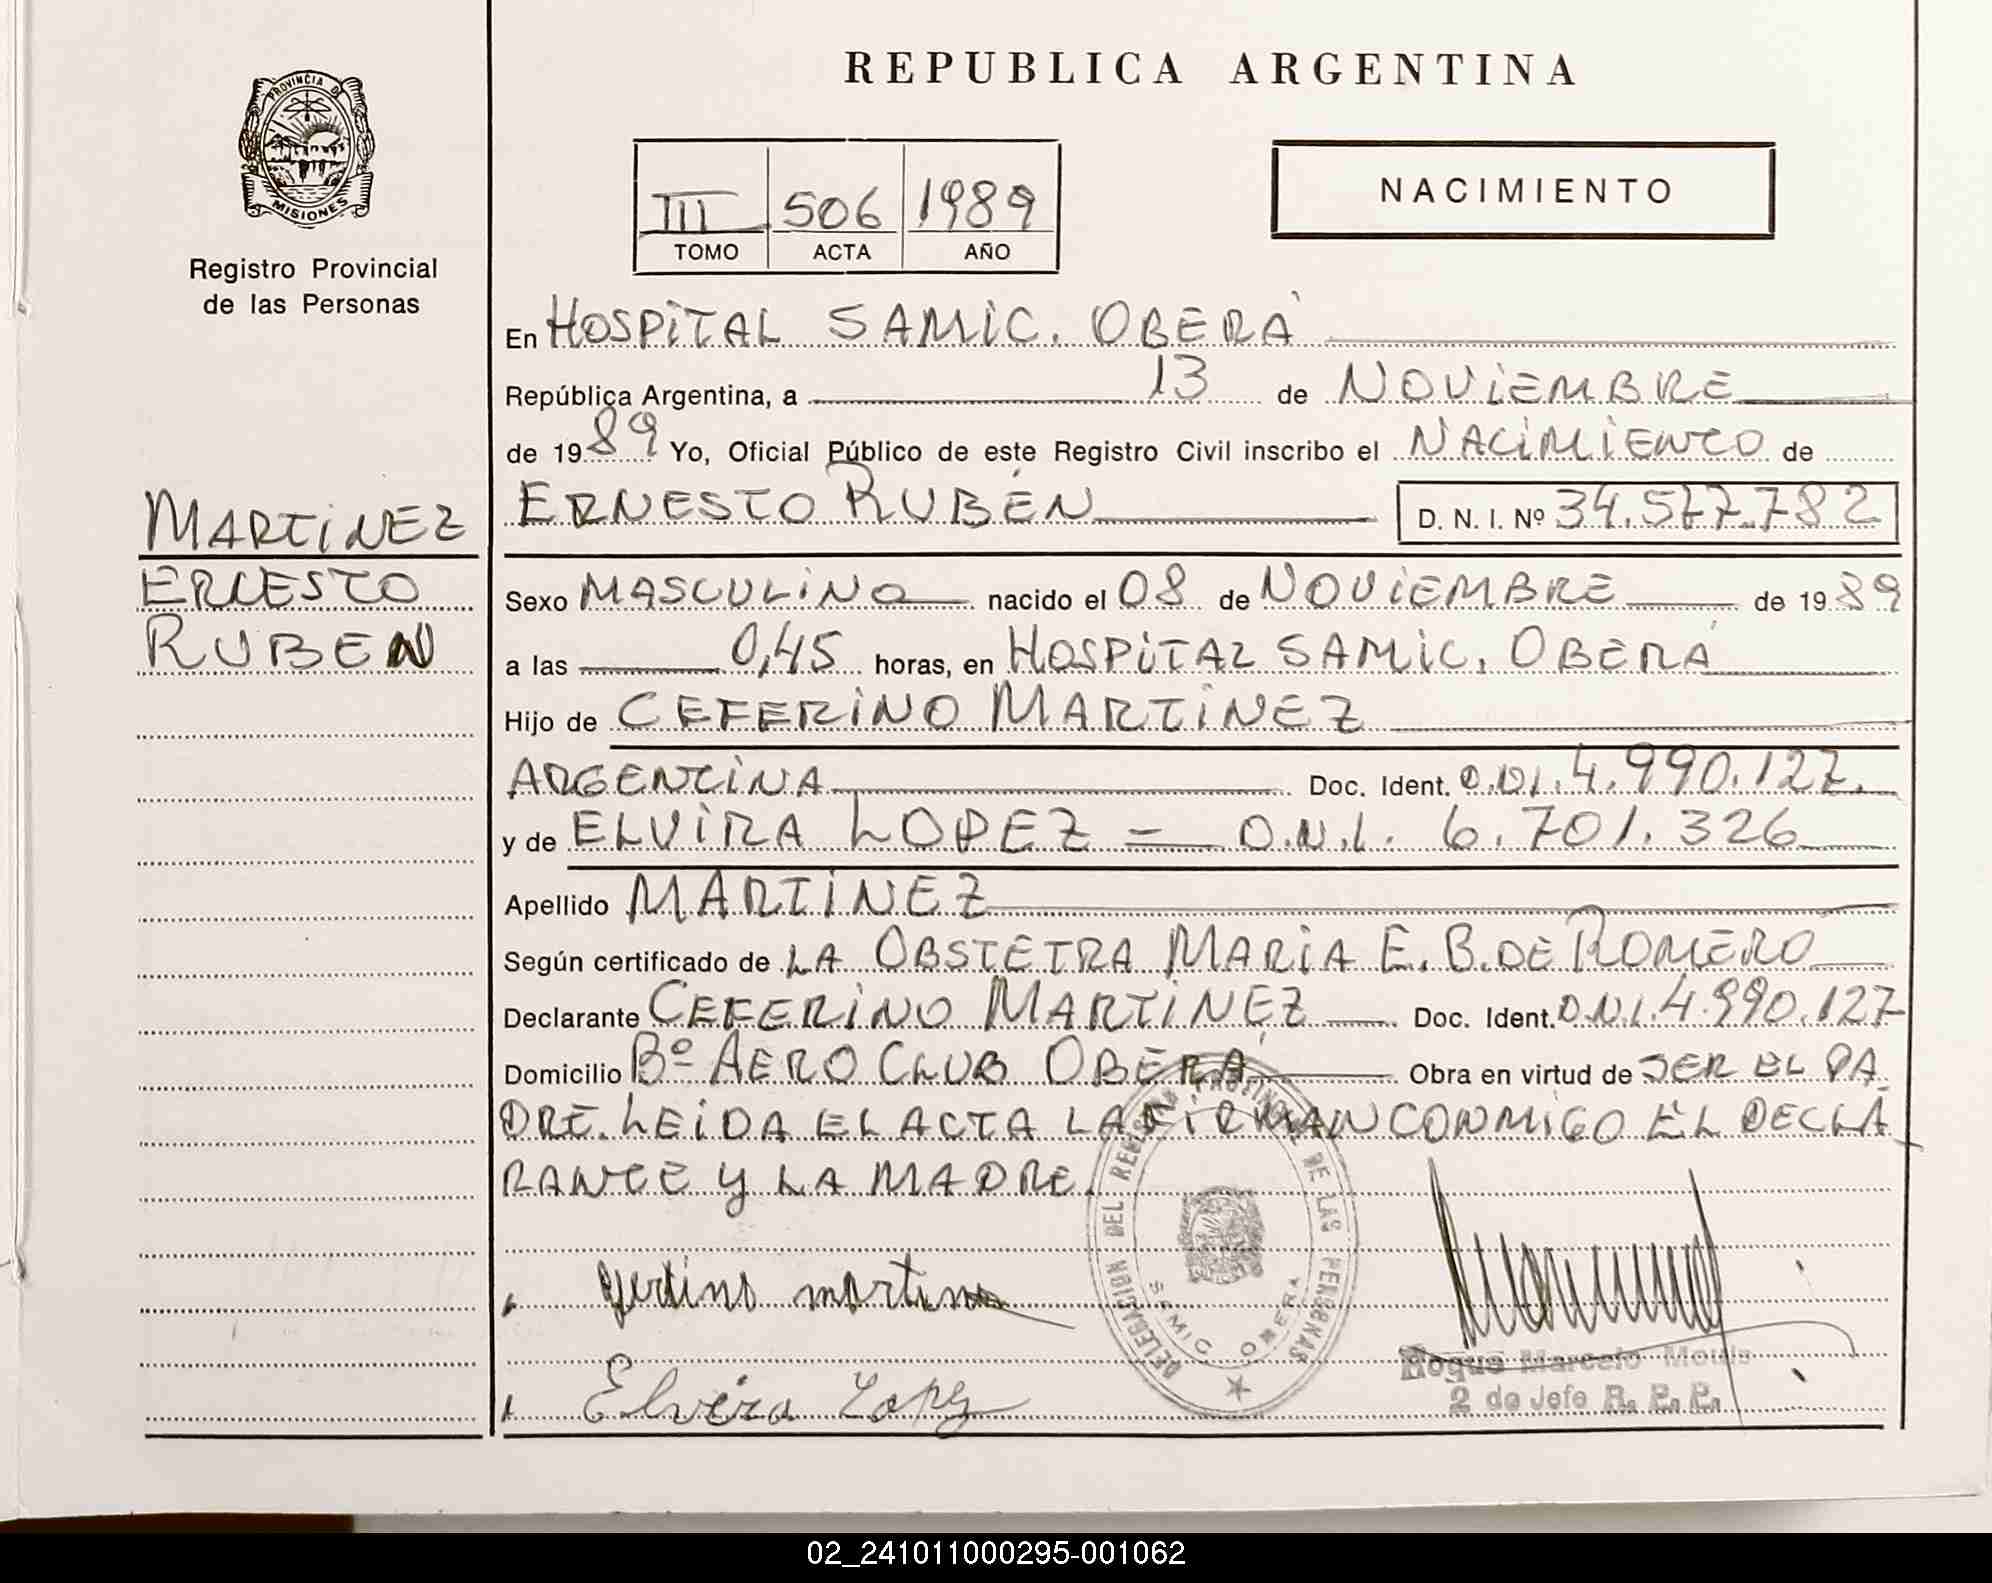 REPUBLICA ARGENTINA
PROVINCIA DE
MISIONES
Registro Provincial
de las Personas
III 506 1989
TOMO ACTA AÑO
NACIMIENTO
En HOSPITAL SAMIC. OBERÁ
República Argentina, a 13 de NOVIEMBRE
de 1989 Yo, Oficial Público de este Registro Civil inscribo el NACIMIENTO de
MARTINEZ
ERNESTO
RUBEN
ERNESTO RUBÉN D. N. I. Nº 34.577.782
Sexo MASCULINO nacido el 08 de NOVIEMBRE de 1989
a las 0,45 horas, en HOSPITAL SAMIC. OBERÁ
Hijo de CEFERINO MARTINEZ
ARGENTINA Doc. Ident. D.N.I. 4.990.127.
y de ELVIRA LOPEZ = D.N.I. 6.701.326
Apellido MARTINEZ
Según certificado de LA OBSTETRA MARIA E. B. DE ROMERO
Declarante CEFERINO MARTINEZ Doc. Ident. D.N.I. 4.990.127
Domicilio Bº AERO CLUB OBERÁ Obra en virtud de SER EL PA
DRE. LEIDA EL ACTA LA FIRMAN CONMIGO EL DECLA
RANTE Y LA MADRE.
DELEGACION DEL REGISTRO PROVINCIAL DE LAS PERSONAS
SAMIC OBERA
Elvira Lopez
Roque Marcelo
2 do Jefe R. P. P.
02_241011000295-001062